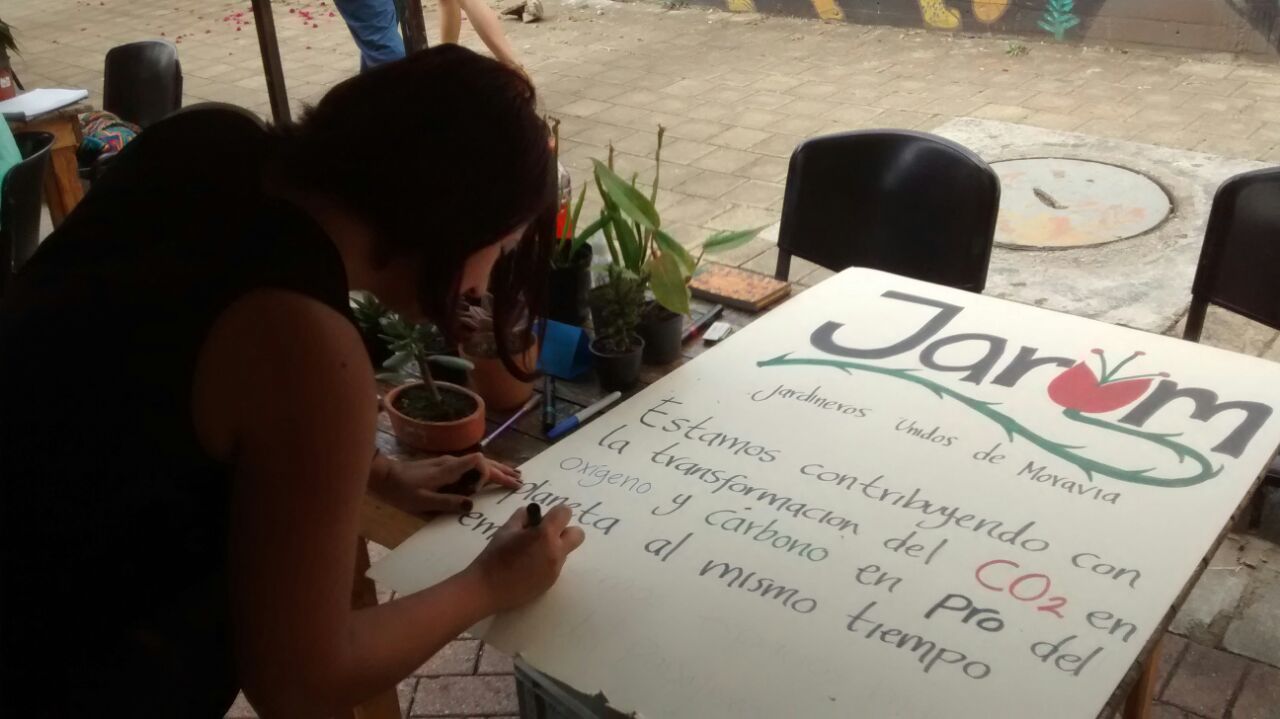 Jarum
Jardineros Unidos de Moravia
Estamos contribuyendo con
la transformacion del CO2 en
oxigeno y carbono en pro del
planeta al mismo tiempo